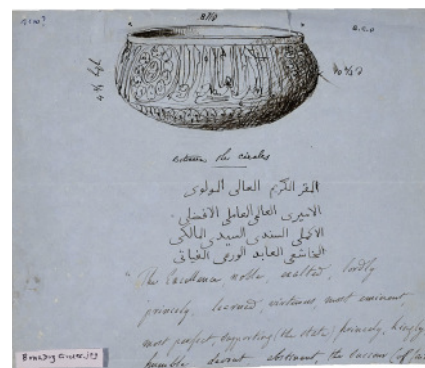 between the circles
المقر الكريم العالى المولوى
الاميرى العالمى العاملى الافضلى
الاكملى السندى السيدى المالكى
الخاشعى العابد الورعى الغياثى
"The Excellence noble, exalted, lordly
princely, learned, virtuous, most eminent,
most perfect, supporting (the state) princely, kingly
humble devout, abstinent, the